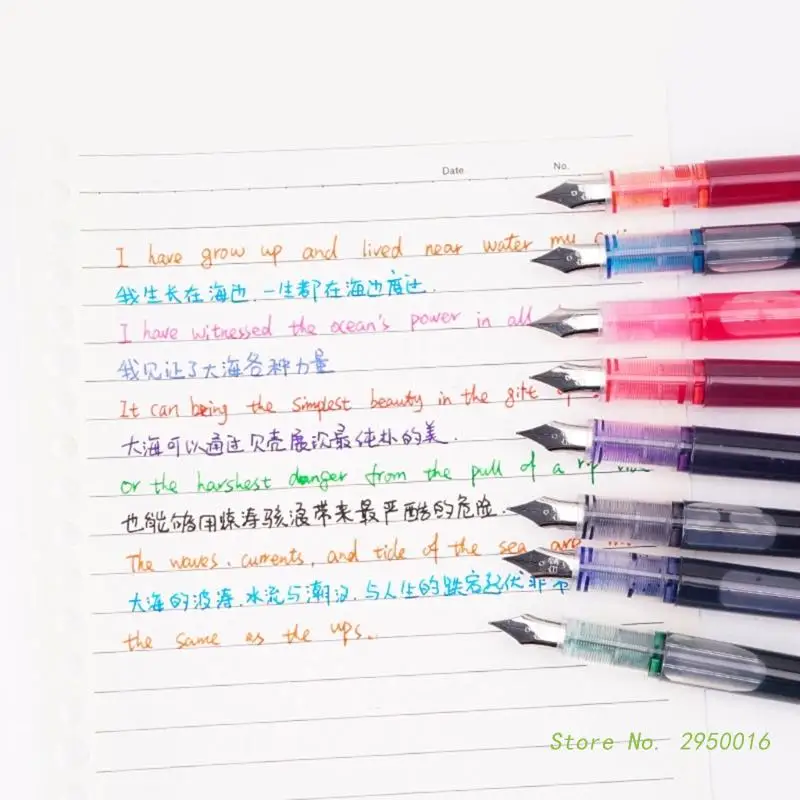 Date No.
I have grow up and lived near water my
我生长在海边,一生都在海边度过.
I have witnessed the ocean's power in all
我见证了大海各种力量
It can being the simplest beauty in the gift
大海可以通过贝壳展示最纯朴的美.
or the harshest danger from the pull of a rip
也能够用惊涛骇浪带来最严酷的危险.
The waves. currents, and tide of the sea are
大海的波涛.水流与潮汐.与人生的跌宕起伏非
the same as the ups..
Store No. 2950016